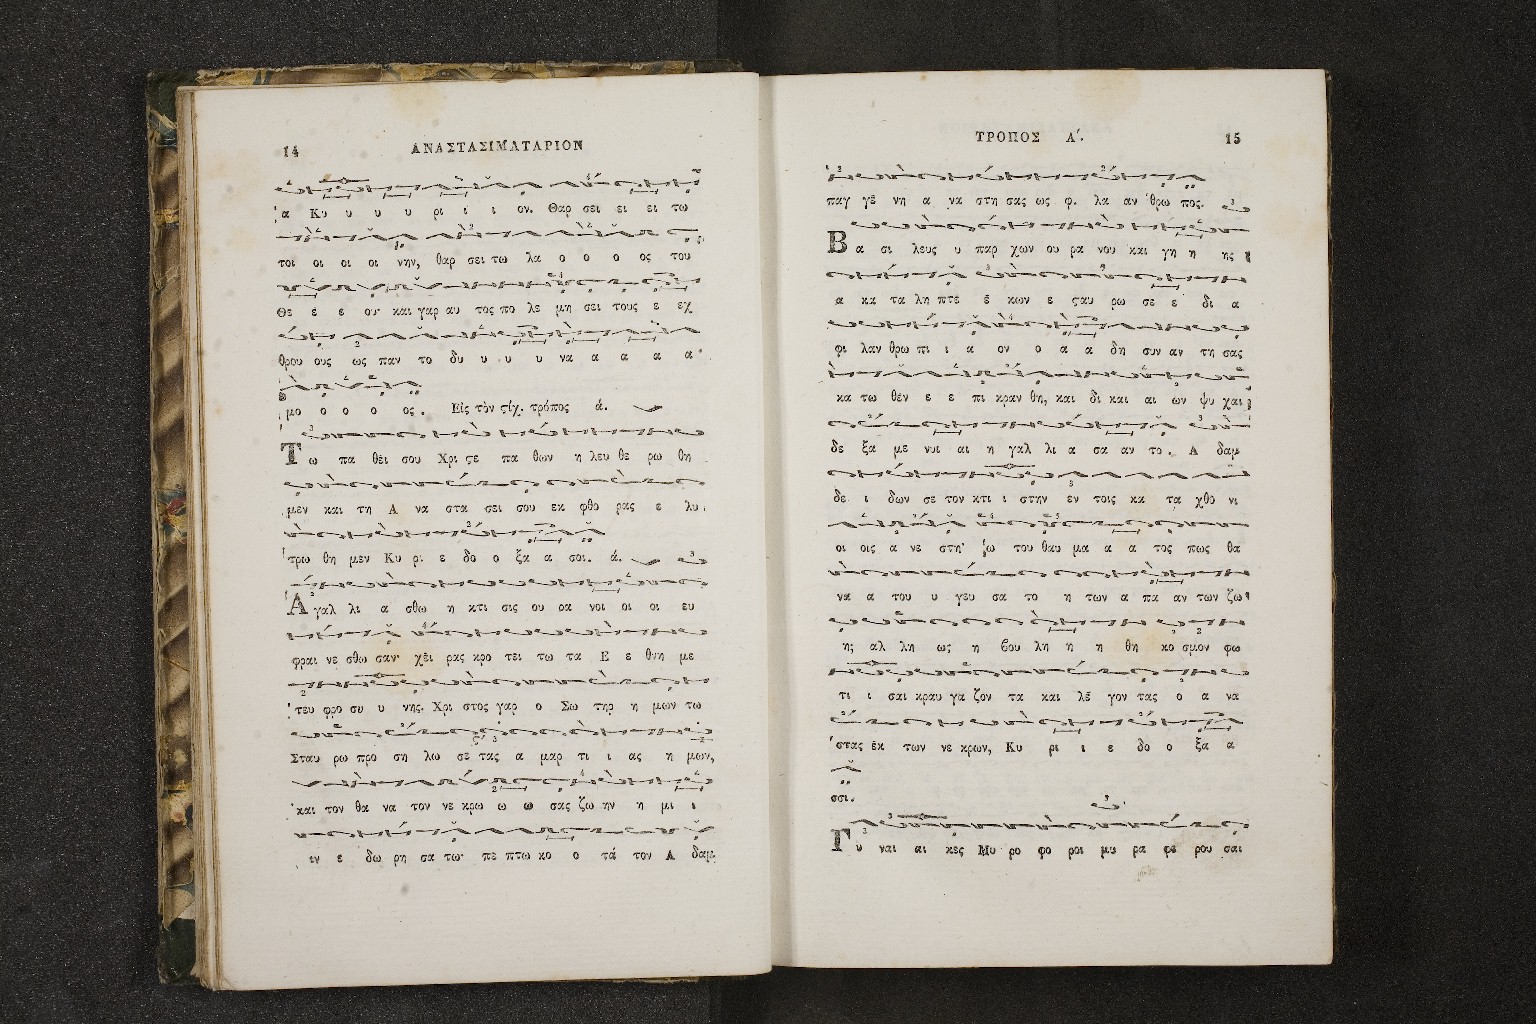 14
ΑΝΑΣΤΑΣΙΜΑΤΑΡΙΟΝ
α Κυ υ υ υ ρι ι ι ον. Θαρ σει ει ει τω
τοι οι οι οι νην, θαρ σει τω λα ο ο ο ος του
Θε ε ε ου· και γαρ αυ τος πο λε μη σει τους ε εχ
θρου ους ως παν το δυ υ υ υ να α α α α
μο ο ο ο ος. Εἰς τὸν ϛίχ. τρόπος ά.
Τω πα θει σου Χρι ϛε πα θων η λευ θε ρω θη
μεν και τη Α να στα σει σου εκ φθο ρας ε λυ
τρω θη μεν Κυ ρι ε δο ο ξα α σοι. ά.
Α γαλ λι α σθω η κτι σις ου ρα νοι οι οι ευ
φραι νε σθω σαν· χει ρας κρο τει τω τα Ε ε θνη με
τευ φρο συ υ νης. Χρι στος γαρ ο Σω τηρ η μων τω
Σταυ ρω προ ση λω σε τας α μαρ τι ι ας η μων,
και τον θα να τον νε κρω ω ω σας ζω ην η μι ι
ιν ε δω ρη σα το· πε πτω κο ο τά τον Α δαμ
ΤΡΟΠΟΣ Α΄.
15
παγ γε νη α να στη σας ως φ. λα αν θρω πος.
Βα σι λευς υ παρ χων ου ρα νου και γη η ης
α κα τα λη πτε ε κων ε ϛαυ ρω σε ε δι α
φι λαν θρω πι ι α ον ο α α δη συν αν τη σας
κα τω θεν ε ε πι κραν θη, και δι και αι ων ψυ χαι
δε ξα με νυι αι η γαλ λι α σα αν το. Α δαμ
δε ι δων σε τον κτι ι στην εν τοις κα τα χθο νι
οι οις α νε στη· ω του θαυ μα α α τος πως θα
να α του υ γευ σα το η των α πα αν των ζω
ης αλ λη ως η βου λη η η θη κο σμον φω
τι ι σαι κραυ γα ζον τα και λε γον τας ο α να
στας εκ των νε κρων, Κυ ρι ι ε δο ο ξα α
σσι.
Γυ ναι αι κες Μυ ρο φο ροι μυ ρα φε ρου σαι